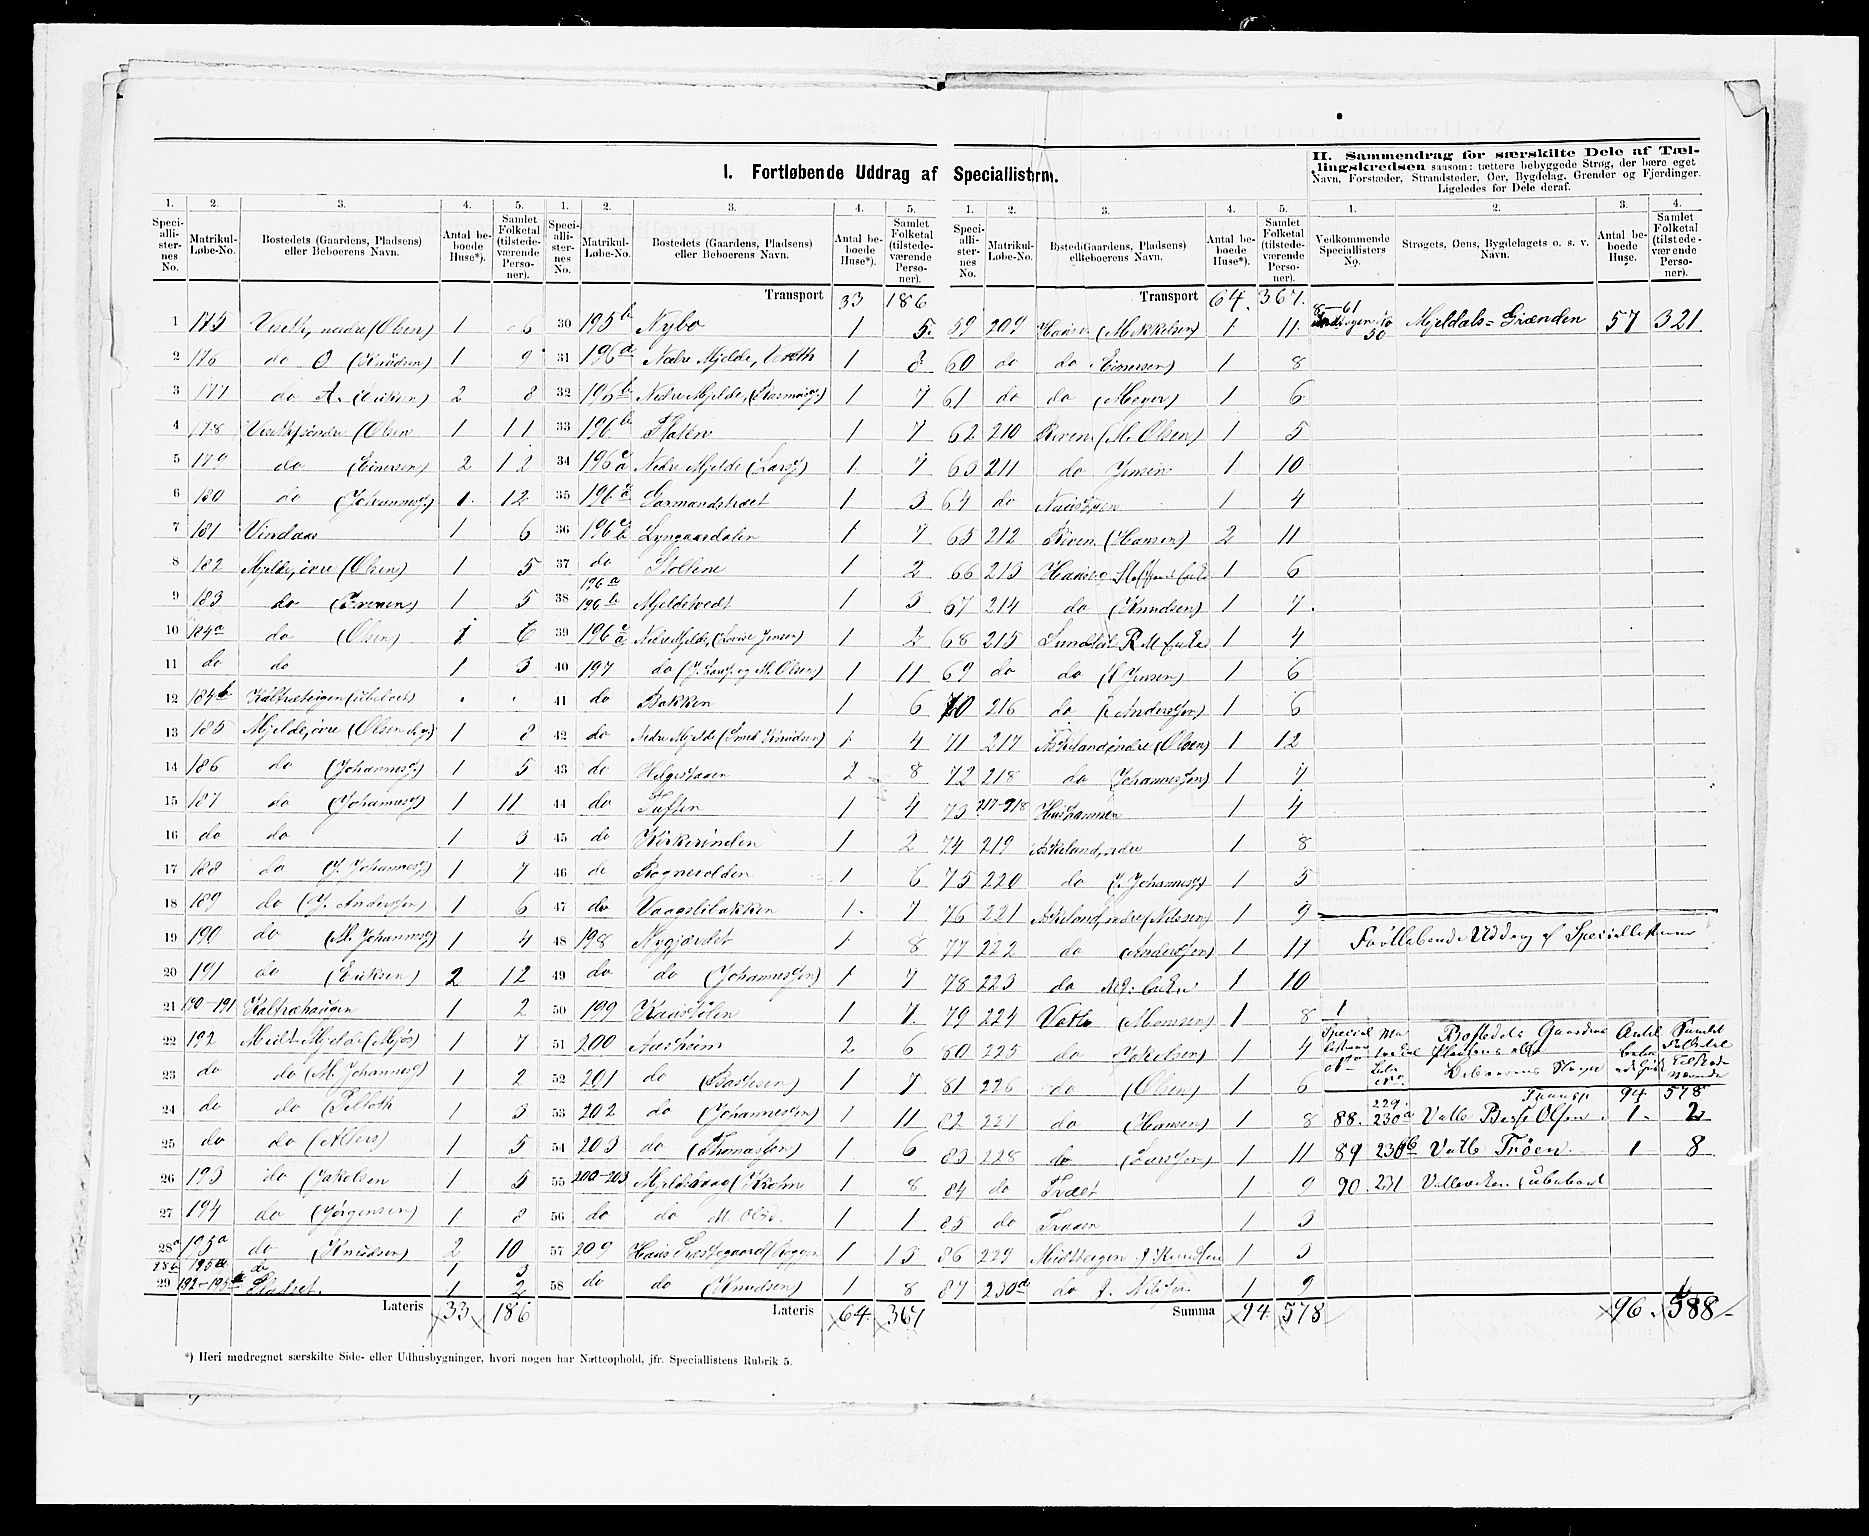 I. Fortløbende Uddrag af Speciallisterne.
II. Sammendrag for særskilte Dele af Tæl-
lingskredsen saasom: tættere bebyggede Strøg, der bære eget
Navn, Forstæder, Strandsteder, Øer, Bygdelag, Grender og Fjerdinger.
Ligeledes for Dele deraf.
1. 2. 3. 4. 5.
Speciallisternes No. Matrikul-Løbe-No. Bostedets (Gaardens, Pladsens) eller Beboerens Navn. Antal beboede Huse*). Samlet Folketal (tilstedeværende Personer).
1 175 Viseth, nedre (Olsen) 1 6
2 176 do O (Knudsen) 1 9
3 177 do A. (Eriksen) 2 8
4 178 Viseth søndre (Olsen 1 11
5 179 do (Einersen) 2 12
6 180 do (Johanness.) 1 12
7 181 Vindaas 1 6
8 182 Mjelde, øvre (Olsen) 1 5
9 183 do 1 5
10 184a do (Olsen) 1 6
11 do do 1 3
12 184b (ubeboet) . .
13 185 Mjelde, øvre (Olsen 1 8
14 186 do (Johannesg.) 1 5
15 187 do (Johannesg) 1 11
16 do do 1 3
17 188 do (J. Johannesg) 1 7
18 189 do (J. Andersen) 1 6
19 190 do (M. Johannesg) 1 4
20 191 do (Eriksen) 2 12
21 190-191 Kaltræhaugen 1 2
22 192 Midt-Mjelde (Mjøs) 1 7
23 do do (M. Johannesg) 1 2
24 do do 1 3
25 do do (Alvers) 1 5
26 193 do (Jakobsen 1 5
27 194 do (Jørgensen) 1 8
28a 195a do (Knudsen) 2 10
28b 195a do 1 3
29 192-195 Pladset. 1 2
Lateris 33 186
Transport 33 186
30 195b Nybø 1 5
31 196a Nedre Mjelde, 1 8
32 196b Nedre Mjelde, 1 7
33 196b Flaten 1 7
34 196 Nedre Mjelde (Larsg) 1 7
35 196 Garmandstræet 1 3
36 196 Lyngaasdalen 1 7
37 do Stollene 1 2
38 196a 196b Mjeldetvedt 1 3
39 196 Nedre Mjelde, (Lovise Jensen) 1 2
40 197 do og M. Olsen) 1 11
41 do Bakken 1 6
42 do Nedre Mjelde (Smed Knudsen) 1 4
43 do Helgeshaven 2 8
44 do Tuften 1 4
45 do Kirkerinden 1 2
46 do Rognevolden 1 6
47 do Vaageslibakken 1 7
48 198 Nygjærdet 1 8
49 do do (Johannesgen) 1 7
50 199 Kaasstølen 1 7
51 200 Aasheim 2 6
52 201 do (Bastesen) 1 7
53 202 do (Johannesgen) 1 11
54 203 do (Thomassen) 1 6
55 200-203 Mjeldehaas (Krohn 1 8
56 do do M. Olsn. 1 1
57 209 Haus Præstegaard 1 15
58 do do (Knudsen) 1 8
Lateris 64 367
Transport 64. 367.
59 209 Hause (Mikkelsen) 1 11
60 do do Einersen) 1 8
61 do do (Meyer) 1 6
62 210 Riven (M. Olsen) 1 5
63 211 do Jensen 1 10
64 do 1 4
65 212 Riven (Hansen) 2 11
66 213 1 6
67 214 do (Knudsen) 1 7
68 215 1 4
69 do do Jensen) 1 6
70 216 do Andersen) 1 6
71 217 Askeland søndre (Olsen) 1 12
72 218 do Johannessen) 1 7
73 217-218 1 4
74 219 Askeland, nedre 1 8
75 220 do (J. Johannesg) 1 5
76 221 Askeland, nedre (Nilssen) 1 9
77 222 do (Andersen) 1 11
78 223 do 1 10
79 224 Vatle (Monsen) 1 8
80 225 do Jakobsen) 1 4
81 226 do (Olsen) 1 6
82 227 do (Hansen) 1 8
83 228 do (Larssen) 1 11
84 do Træet 1 9
85 do 1 3
86 229 Midtbergen J Knudsen 1 3
87 230a do J. Nilsen 1 9
Summa 94 578
1. 2. 3. 4.
Vedkommende Speciallisters No. Strøgets, Øens, Bygdelagets o. s. v. Navn. Antal beboede Huse. Samlet Folketal (tilstedeværende Personer).
8-61 50 Mjeldals-Grænden 57 321
Fortløbende Uddrag af Speciallisterne
Transp 94 578
88. 229. 230a Vatle Berje Olsen 1. 2
89 230b Vatle Trøen 1 8
90. 231 Vatleviken (ubeboet
96. 588
*) Heri medregnet særskilte Side- eller Udhusbygninger, hvori nogen har Natteophold, jfr. Speciallistens Rubrik 5.